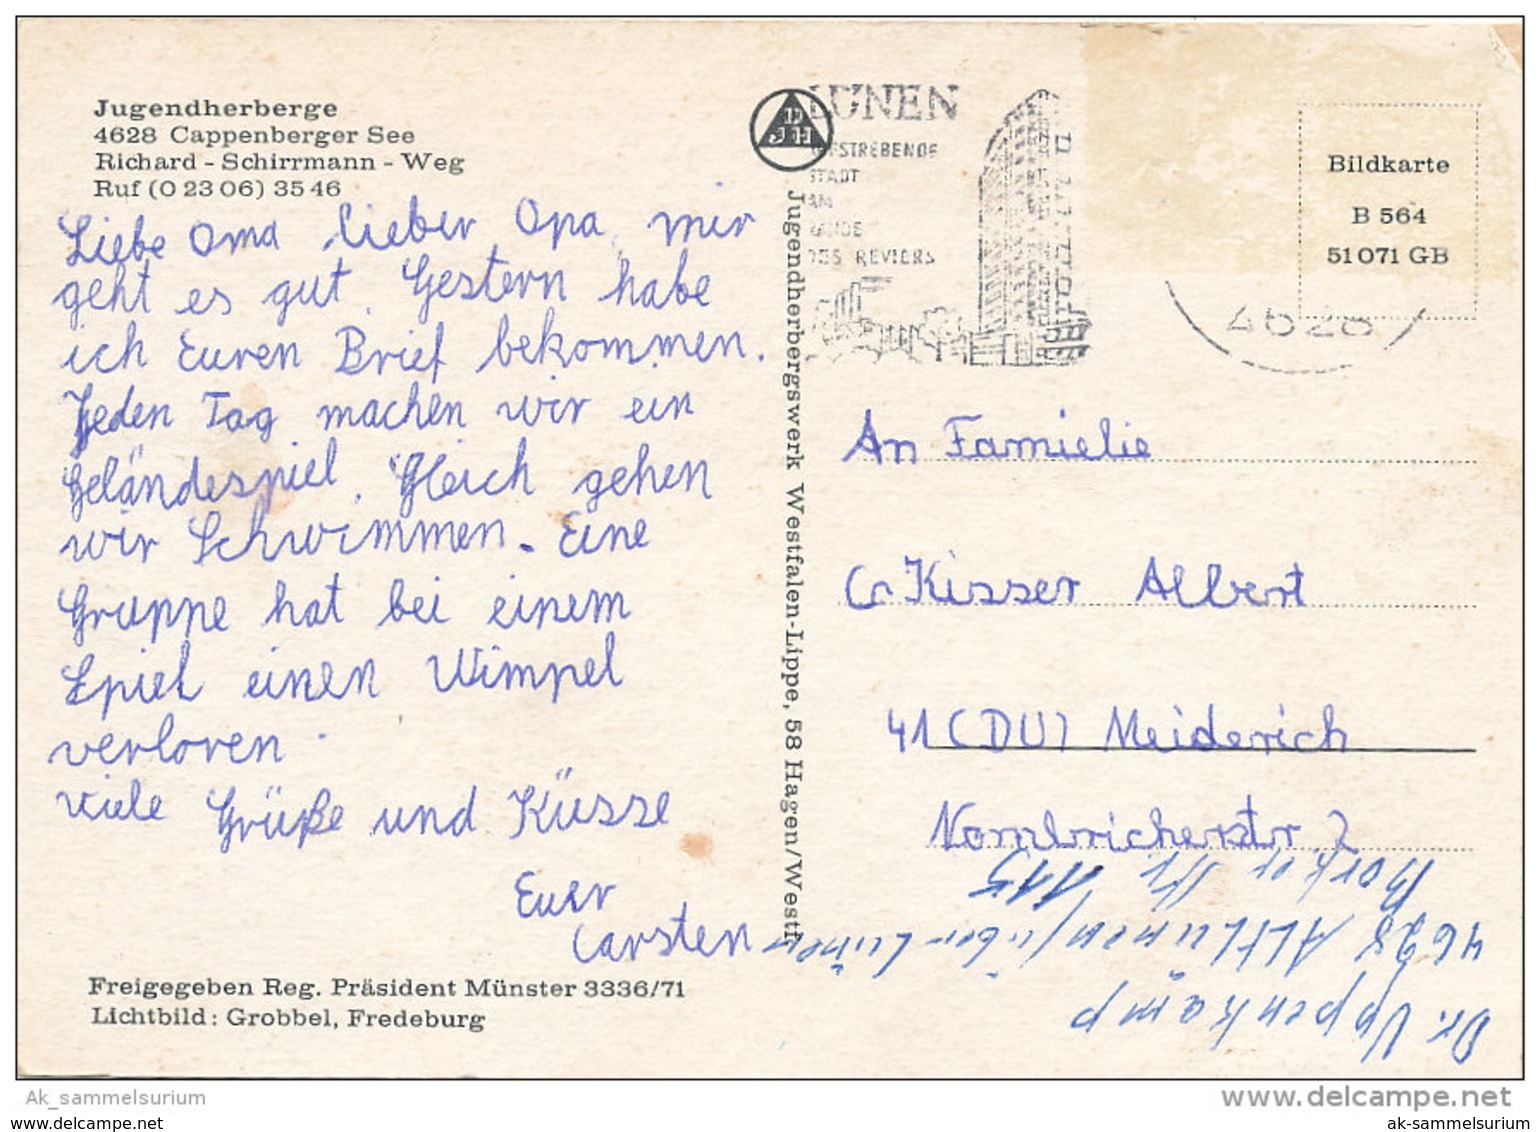 Jugendherberge
4628 Cappenberger See
Richard - Schirrmann - Weg
Ruf (0 23 06) 35 46
Liebe Oma, lieber Opa, mir
geht es gut. Gestern habe
ich Euren Brief bekommen.
Jeden Tag machen wir ein
Geländespiel. Gleich gehen
wir Schwimmen. Eine
Gruppe hat bei einem
Spiel einen Wimpel
verloren.
viele Grüße und Küsse
Euer
Carsten
Freigegeben Reg. Präsident Münster 3336/71
Lichtbild: Grobbel, Fredeburg
DJH
Jugendherbergswerk Westfalen-Lippe, 58 Hagen/Westf.
LÜNEN
AUFSTREBENDE
STADT
AM
RANDE
DES REVIERS
4628
Bildkarte
B 564
51 071 GB
An Familie
Kisser Albert
41 (DU) Meiderich
2
Dr. Uppenkamp
4628 Altlünen/über Lünen
Borker Str. 115
Ak_sammelsurium
www.delcampe.net
www.akpool.de
ak-sammelsurium